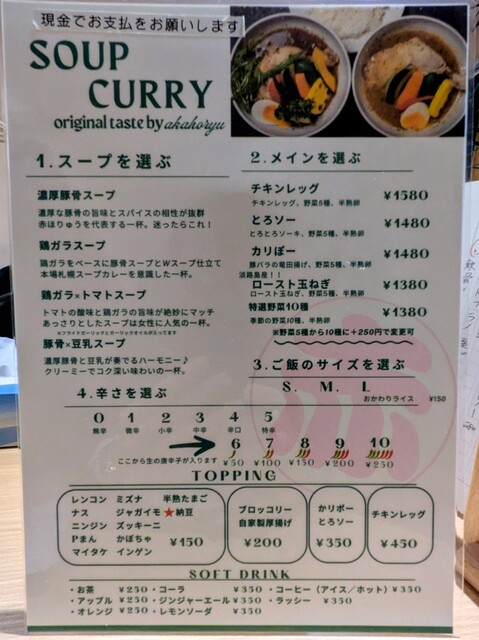 現金でお支払をお願いします
SOUP
CURRY
original taste by akahoryu
1.スープを選ぶ
濃厚豚骨スープ
濃厚な豚骨の旨味とスパイスの相性が抜群
赤ほりゅうを代表する一杯。迷ったらこれ!
鶏ガラスープ
鶏ガラをベースに豚骨スープとWスープ仕立て
本場札幌スープカレーを意識した一杯。
鶏ガラ×トマトスープ
トマトの酸味と鶏ガラの旨味が絶妙にマッチ
あっさりとしたスープは女性に人気の一杯。
※フライドガーリックとガーリックオイルが入ってます
豚骨×豆乳スープ
濃厚豚骨と豆乳が奏でるハーモニー♪
クリーミーでコク深い味わいの一杯。
2.メインを選ぶ
チキンレッグ ¥1580
チキンレッグ、野菜5種、半熟卵
とろソー ¥1480
とろとろソーキ、野菜5種、半熟卵
カリぽー ¥1480
豚バラの竜田揚げ、野菜5種、半熟卵
淡路島産!!
ロースト玉ねぎ ¥1380
ロースト玉ねぎ、野菜5種、半熟卵
特選野菜10種 ¥1380
季節の野菜10種、半熟卵
※野菜5種から10種に+250円で変更可
3.ご飯のサイズを選ぶ
S. M. L
おかわりライス ¥150
4.辛さを選ぶ
0 1 2 3 4 5
無辛 微辛 小辛 中辛 辛口 特辛
6 7 8 9 10
ここから生の唐辛子が入ります ¥50 ¥100 ¥150 ¥200 ¥250
TOPPING
レンコン ミズナ 半熟たまご
ナス ジャガイモ ★納豆
ニンジン ズッキーニ
Pまん かぼちゃ ¥150
マイタケ インゲン
ブロッコリー
自家製厚揚げ
¥200
カリポー
とろソー
¥350
チキンレッグ
¥450
SOFT DRINK
・お茶 ¥250 ・コーラ ¥350 ・コーヒー(アイス/ホット) ¥350
・アップル ¥250 ・ジンジャーエール ¥350 ・ラッシー ¥350
・オレンジ ¥250 ・レモンソーダ ¥350